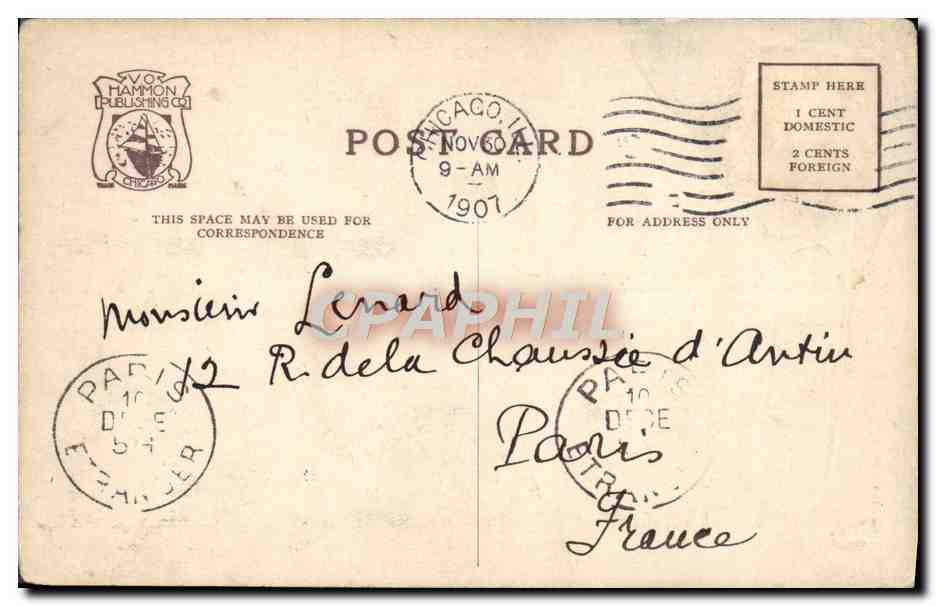 V.O.
HAMMON
PUBLISHING CO
CHICAGO
TRADE MARK
POST CARD
CHICAGO, ILL
NOV 30
9-AM
1907
STAMP HERE
1 CENT
DOMESTIC
2 CENTS
FOREIGN
THIS SPACE MAY BE USED FOR
CORRESPONDENCE
FOR ADDRESS ONLY
Monsieur Lenard
12 R. de la Chaussée d'Antin
Paris
France
CPAPHIL
PARIS
10
DECE
ETRANGER
PARIS
10
DECE
ETRAN